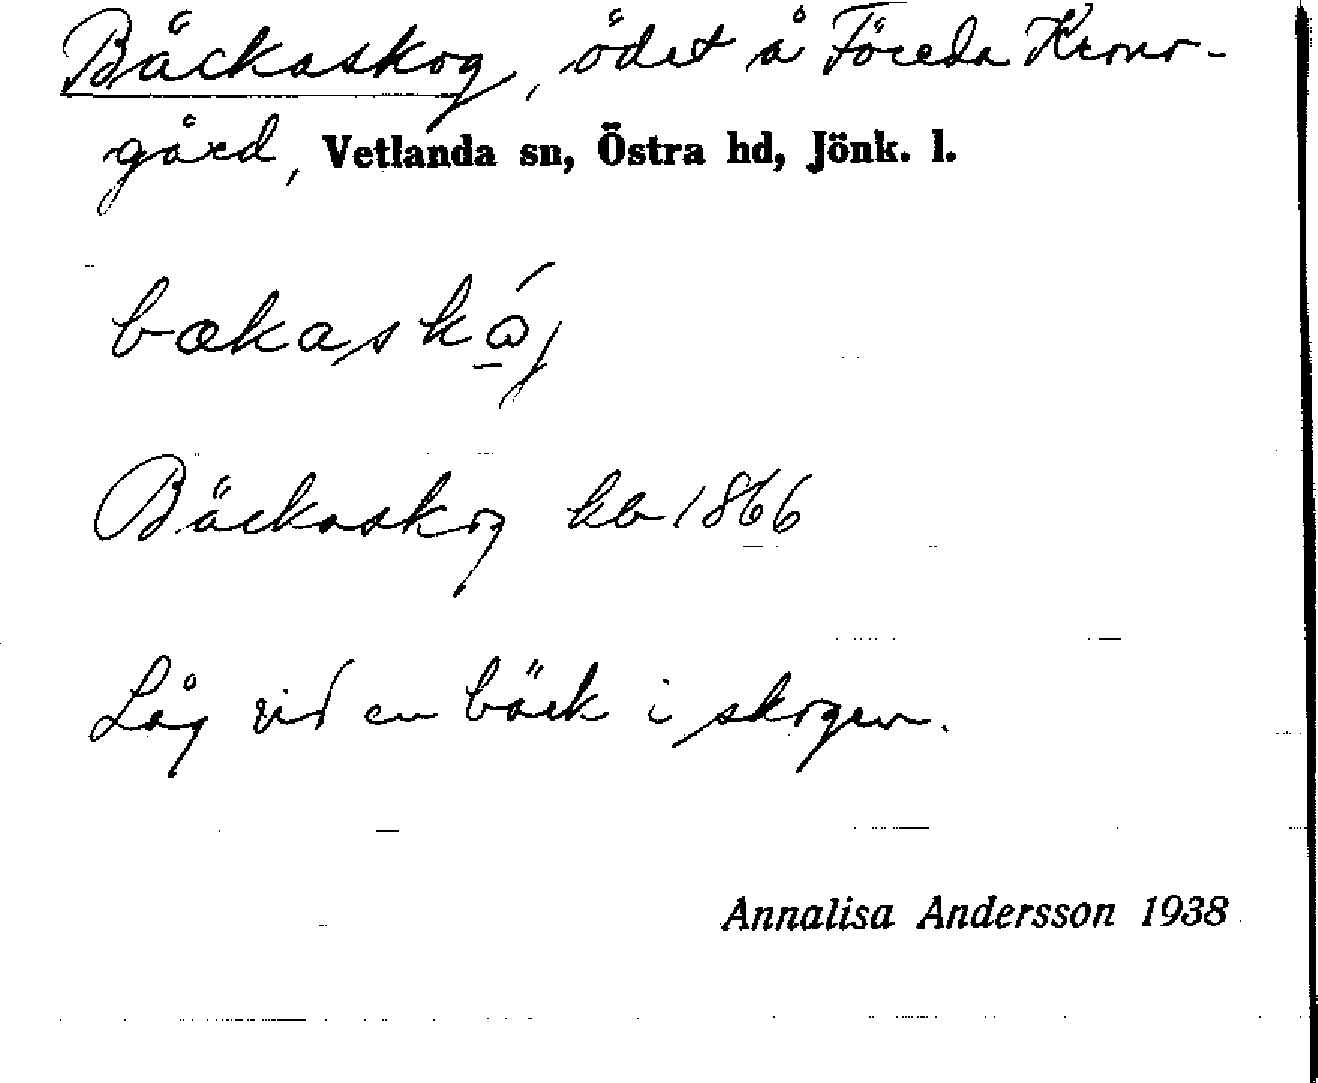 Bäckaskog, ödet å Föreda Krono-
gård, Vetlanda sn, Östra hd, Jönk. l.
bækaskó̱j
Bäckaskog hb 1866
Låg vid en bäck i skogen.
Annalisa Andersson 1938